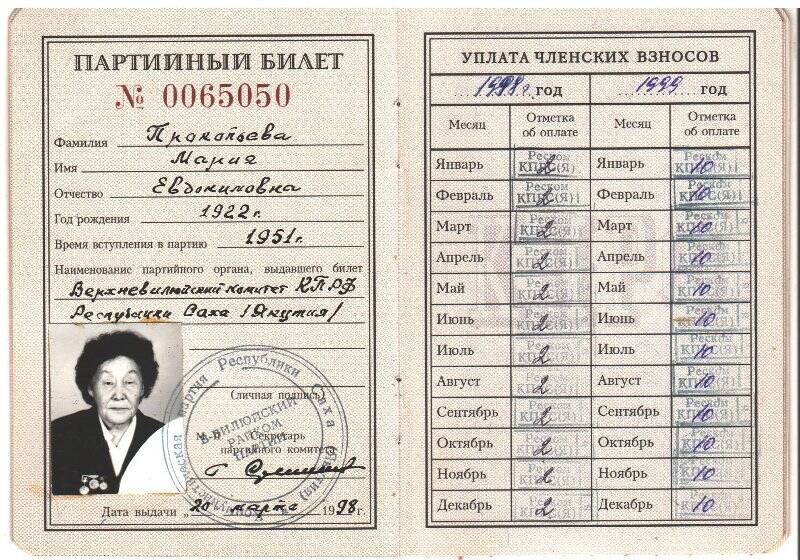 ПАРТИЙНЫЙ БИЛЕТ
№ 0065050
Фамилия Прокопьева
Имя Мария
Отчество Евдокимовна
Год рождения 1922 г.
Время вступления в партию 1951 г.
Наименование партийного органа, выдавшего билет
Верхневилюйский комитет КПРФ
Республики Саха /Якутия/
(личная подпись)
М. п. Секретарь
партийного комитета
Дата выдачи „20 марта 1998 г.
В-ВИЛЮЙСКИЙ
РАЙКОМ
партия Республики Саха
УПЛАТА ЧЛЕНСКИХ ВЗНОСОВ
1998 г. год 1999 год
Месяц Отметка об оплате Месяц Отметка об оплате
Январь Реском КПРС(Я) 2 Январь Реском КПРС(Я) 10
Февраль Реском КПРС(Я) 2 Февраль Реском КПРС(Я) 10
Март Реском КПРС(Я) 2 Март Реском КПРС(Я) 10
Апрель Реском КПРС(Я) 2 Апрель Реском КПРС(Я) 10
Май Реском КПРС(Я) 2 Май Реском КПРС(Я) 10
Июнь Реском КПРС(Я) 2 Июнь Реском КПРС(Я) 10
Июль Реском КПРС(Я) 2 Июль Реском КПРС(Я) 10
Август Реском КПРС(Я) 2 Август Реском КПРС(Я) 10
Сентябрь Реском КПРС(Я) 2 Сентябрь Реском КПРС(Я) 10
Октябрь Реском КПРС(Я) 2 Октябрь Реском КПРС(Я) 10
Ноябрь Реском КПРС(Я) 2 Ноябрь Реском КПРС(Я) 10
Декабрь Реском КПРС(Я) 2 Декабрь Реском КПРС(Я) 10